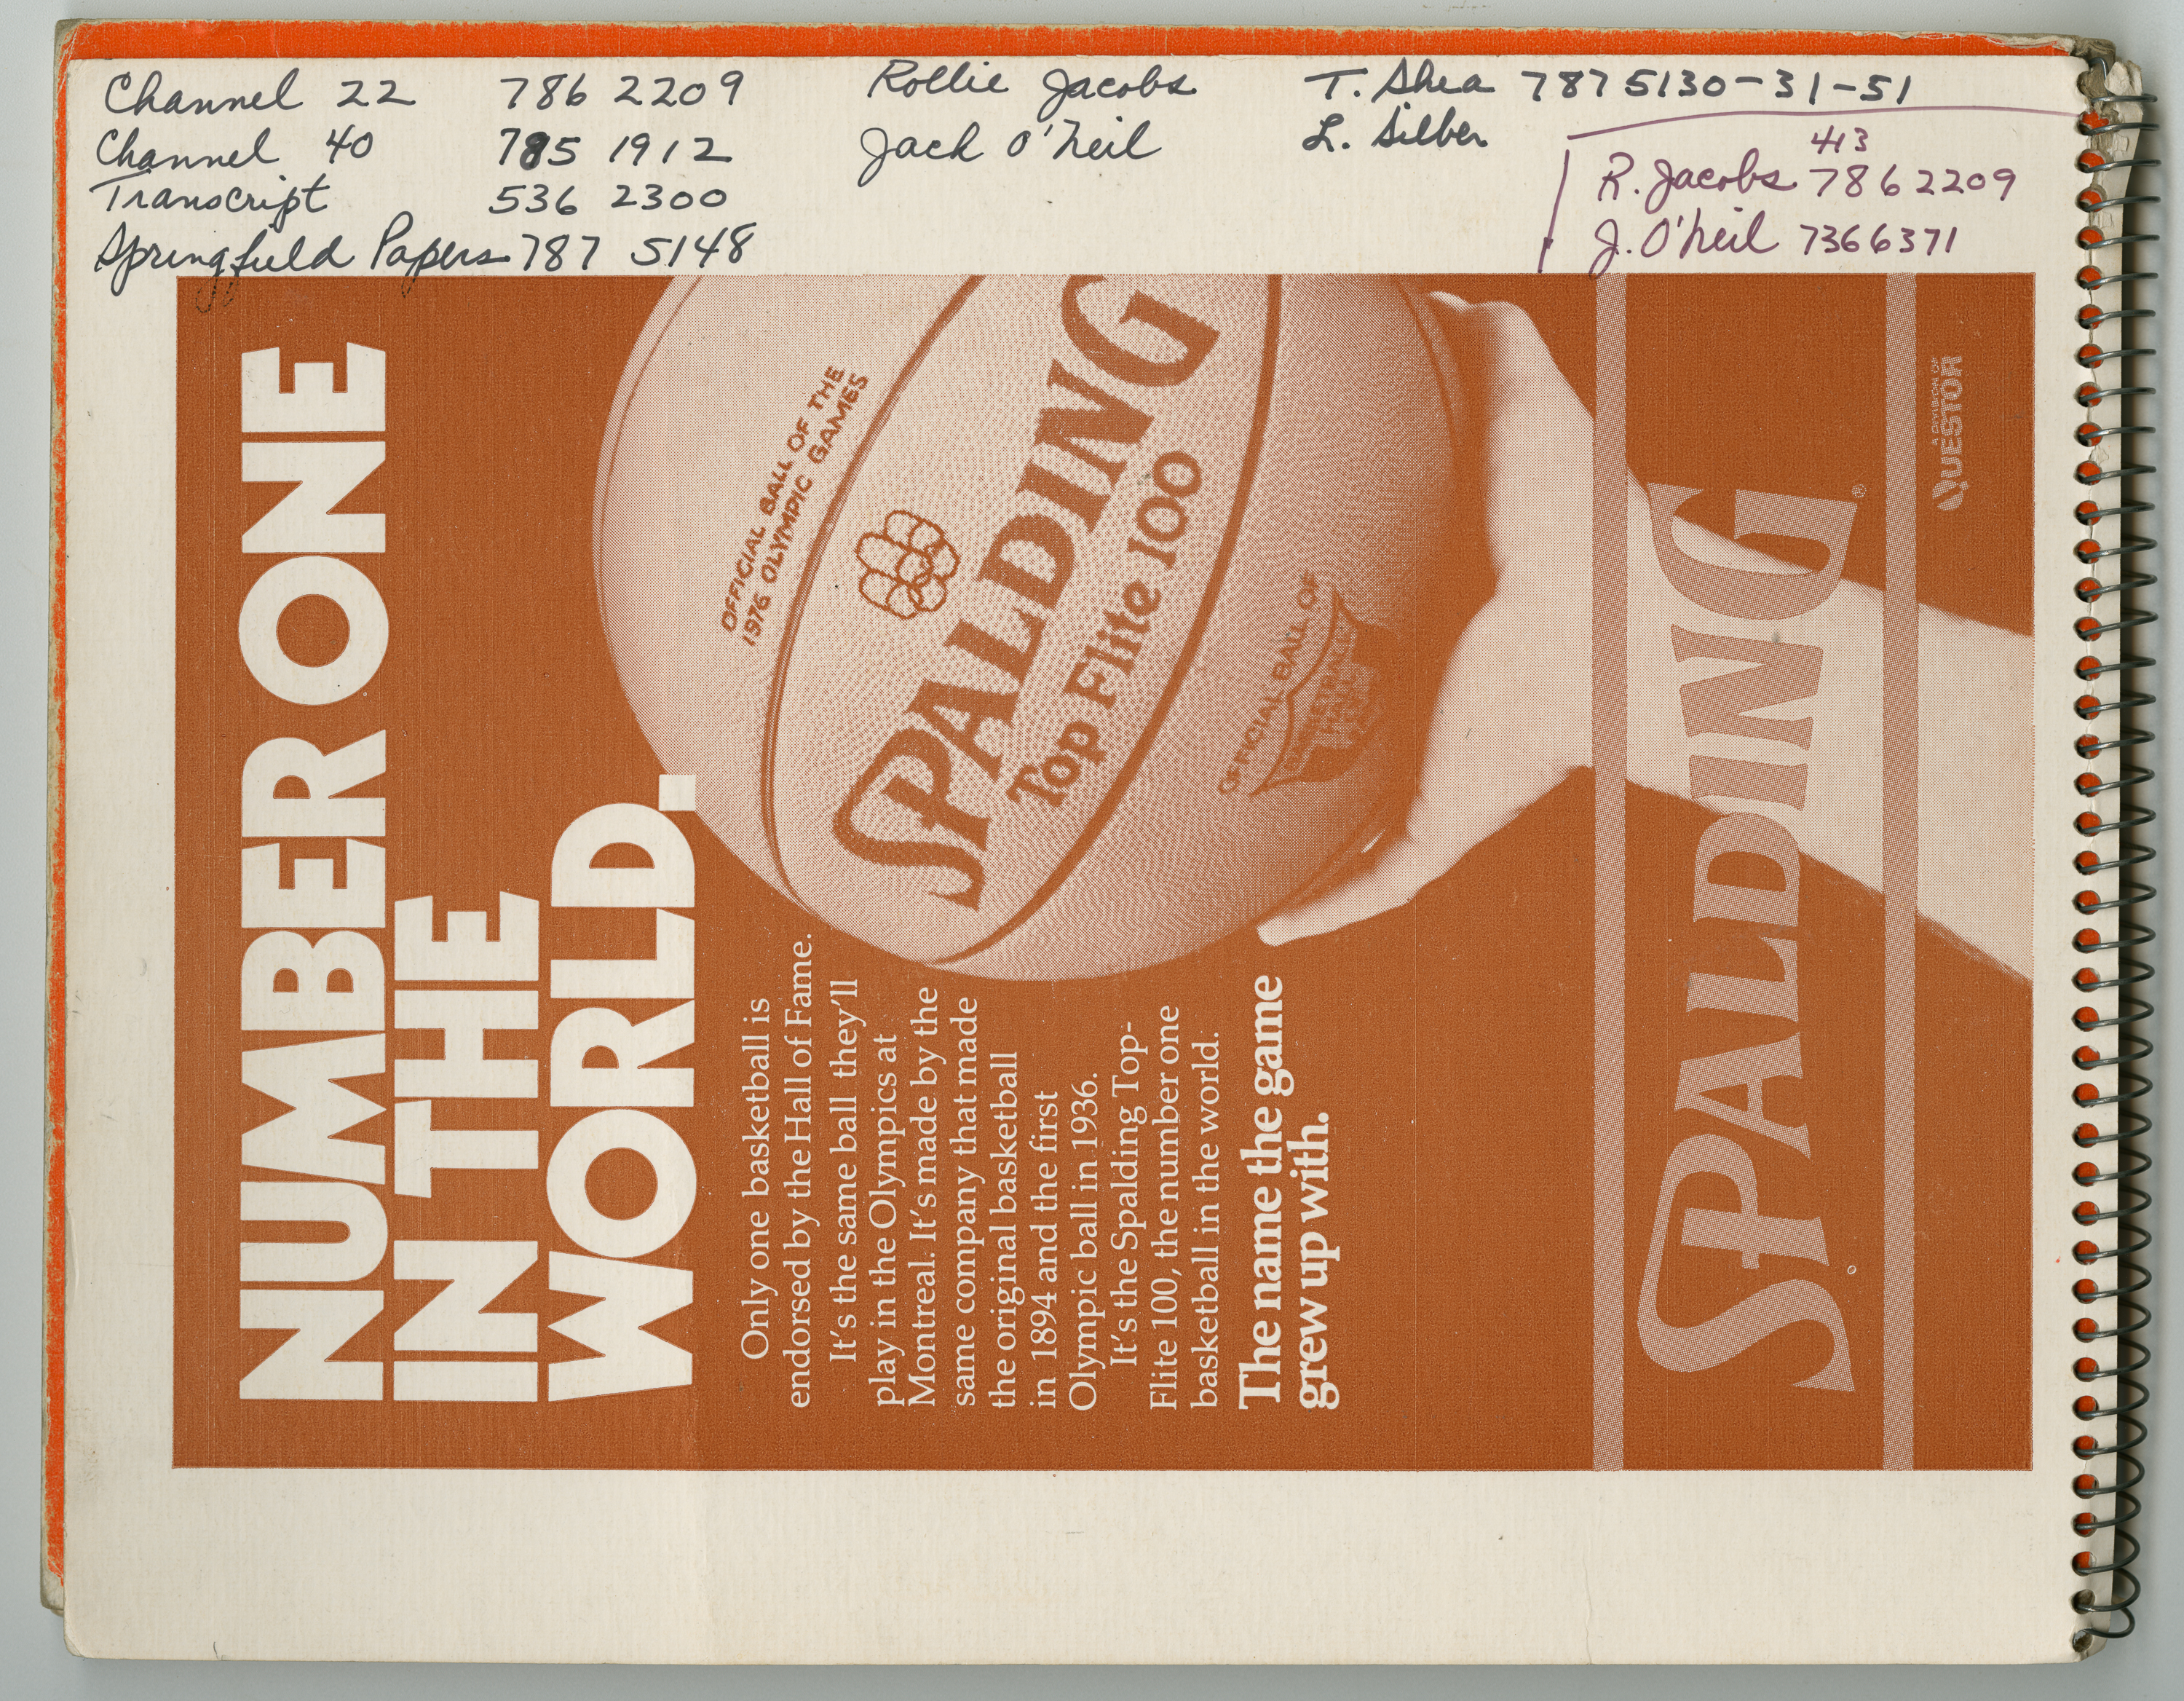 Channel 22 786 2209 Rollie Jacobs T. Shea 787 5130-31-51
Channel 40 785 1912 Jack O'Neil L. Silber
Transcript 536 2300
Springfield Papers 787 5148
413
R. Jacobs 786 2209
J. O'Neil 736 6371
NUMBER ONE
IN THE
WORLD.
Only one basketball is
endorsed by the Hall of Fame.
It's the same ball they'll
play in the Olympics at
Montreal. It's made by the
same company that made
the original basketball
in 1894 and the first
Olympic ball in 1936.
It's the Spalding Top-
Flite 100, the number one
basketball in the world.
The name the game
grew up with.
OFFICIAL BALL OF THE
1976 OLYMPIC GAMES
SPALDING
Top Flite 100
OFFICIAL BALL OF
BASKETBALL
HALL
SPALDING®
A DIVISION OF
QUESTOR